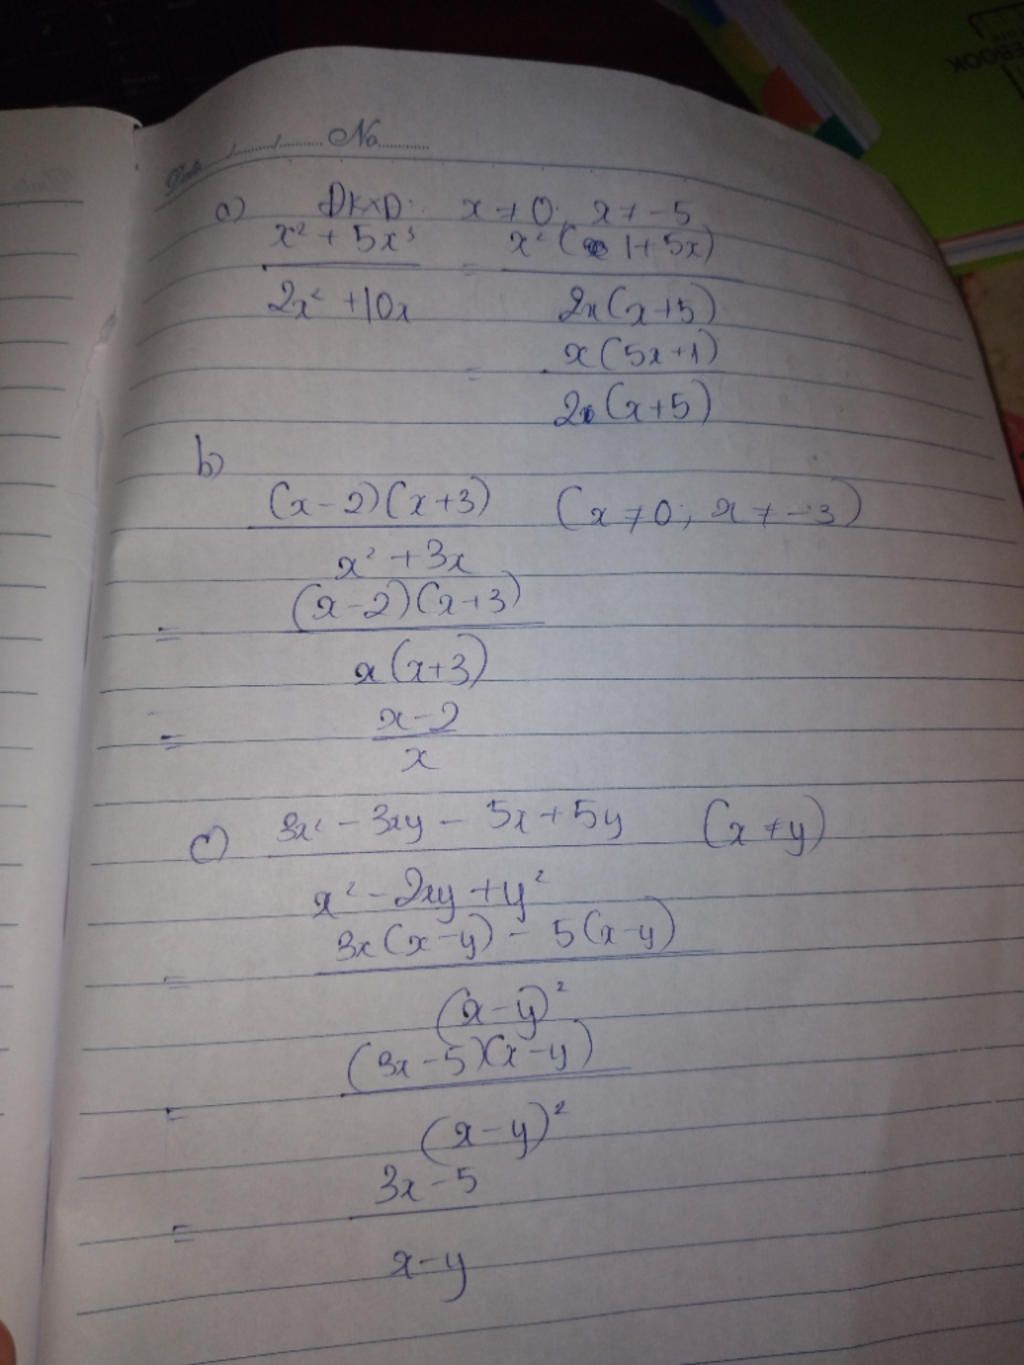 Date ....../....../........ No..........
a) ĐKXĐ: x ≠ 0; x ≠ -5
x² + 5x³ = x² (1+5x)
2x² + 10x 2x(x+5)
= x(5x+1)
2(x+5)
b)
(x-2)(x+3) (x ≠ 0; x ≠ -3)
x² + 3x
= (x-2)(x+3)
x(x+3)
= x-2
x
c) 3x² - 3xy - 5x + 5y (x ≠ y)
x² - 2xy + y²
= 3x(x-y) - 5(x-y)
(x-y)²
= (3x-5)(x-y)
(x-y)²
= 3x-5
x-y
NOTEBOOK